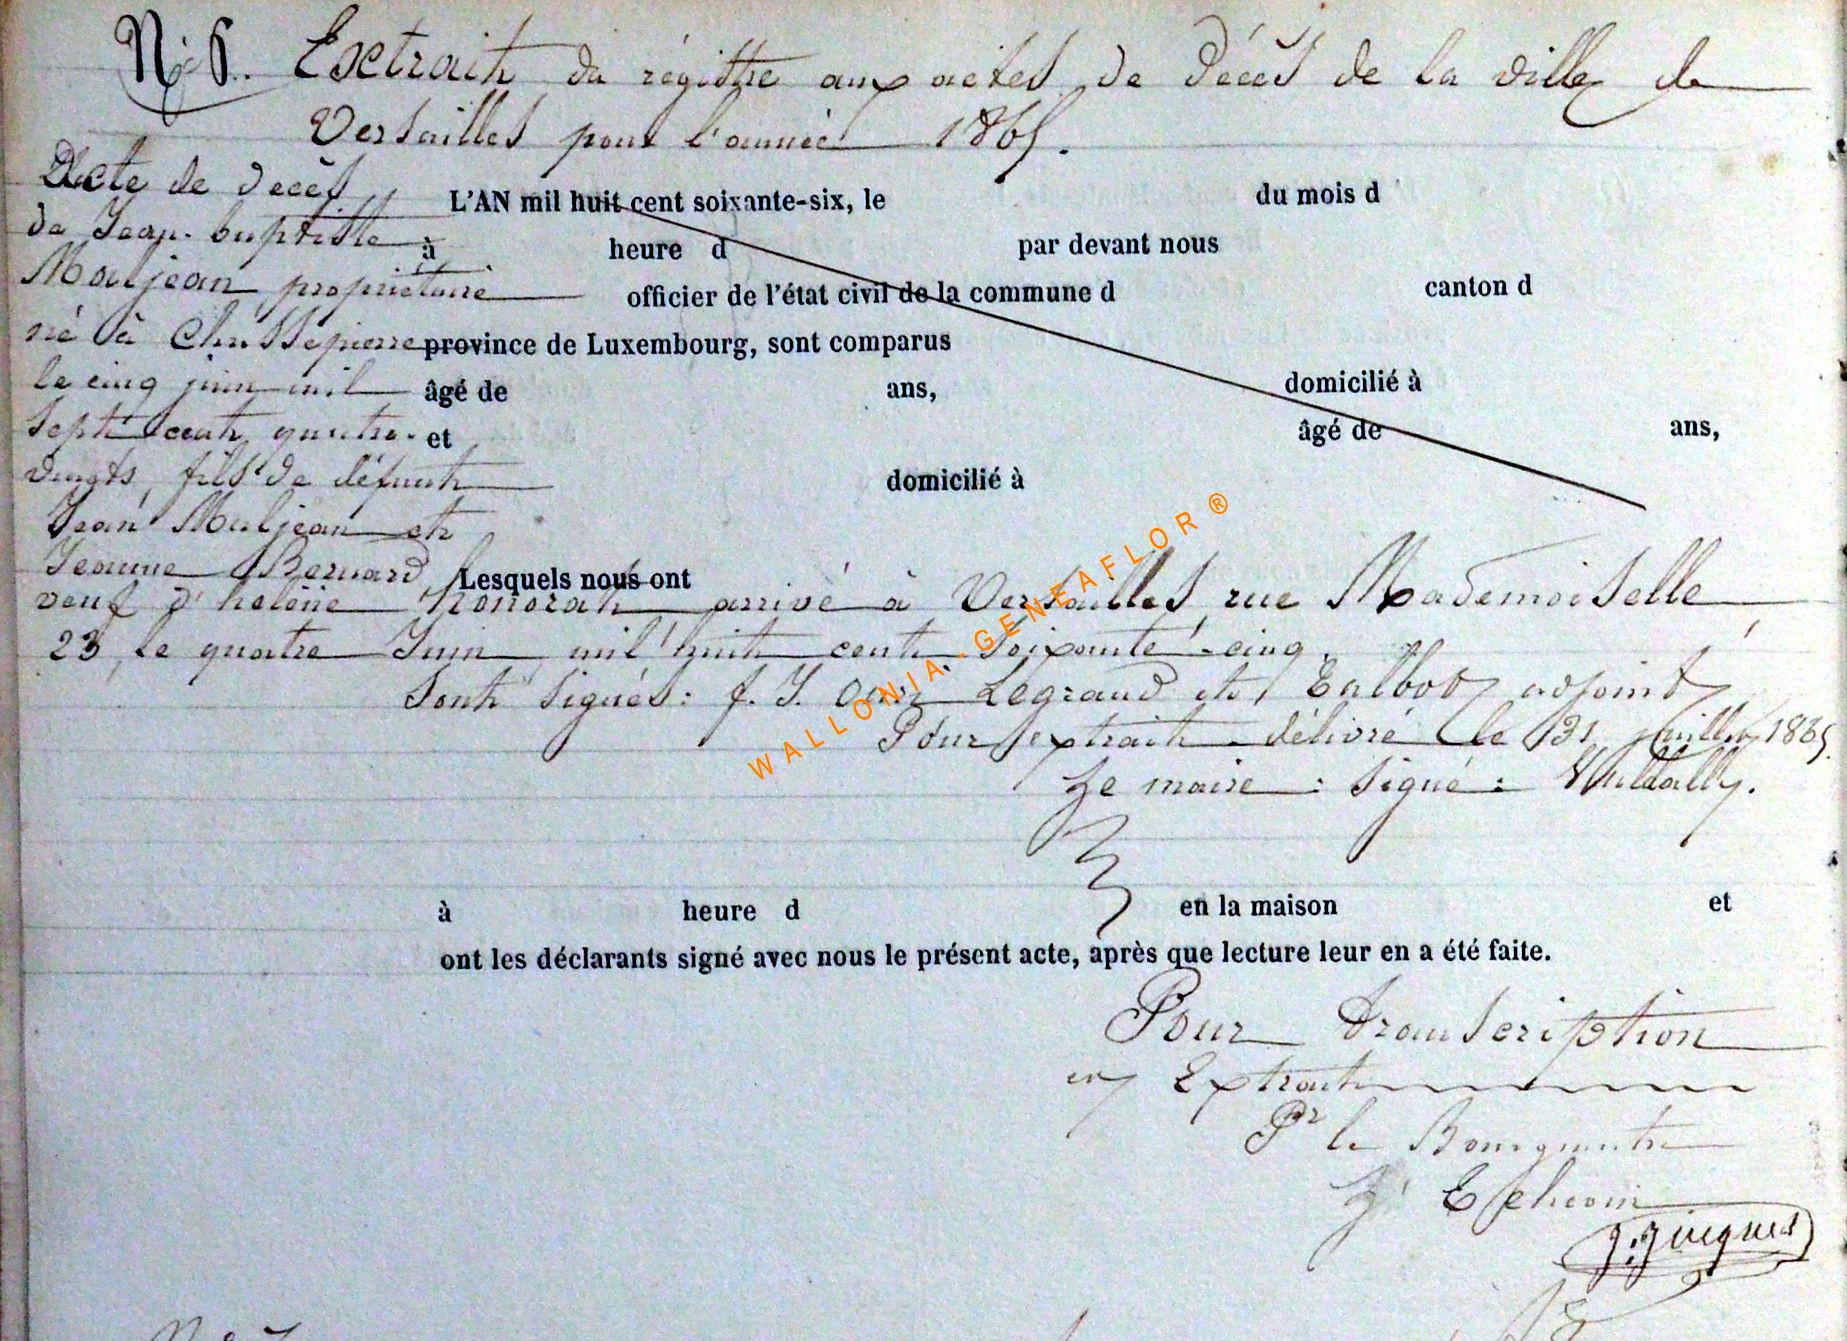 N° 6. Exctrait du régistre aux actes de décès de la ville de
Versailles pour l'année 1865.
Acte de decès
de Jean-baptiste
Maljean, propriétaire
né à Chassepierre
le cinq juin mil
sept cent quatre-
vingts, fils de défunt
Jean Maljean et
Jeanne Bernard,
veuf d'helène honorat arrivé à Versailles, rue Mademoiselle,
23, le quatre Juin mil huit cent soixante-cinq.
Sont signés: f. J. Legrand et Talbot adjoint
Pour extrait délivré le 31 juillet 1865.
Le maire: signé:
L'AN mil huit cent soixante-six, le du mois d
à heure d par devant nous
officier de l'état civil de la commune d canton d
province de Luxembourg, sont comparus
âgé de ans, domicilié à
et âgé de ans,
domicilié à
Lesquels nous ont
à heure d en la maison et
ont les déclarants signé avec nous le présent acte, après que lecture leur en a été faite.
Pour transcription
en Extrait
Pr le Bourgmestre
L'Echevin
J. Jacques
WALLONIA-GENEAFLOR ®